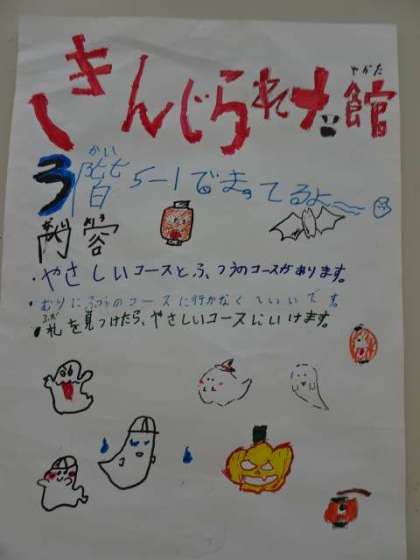 やかた
きんじられた館
かい
3階 5-1でまってるよ〜
ないよう
内容
・やさしいコースとふつうのコースがあります。
・むりにふつうのコースに行かなくていいです
ふだ
・札を見つけたら、やさしいコースにいけます。